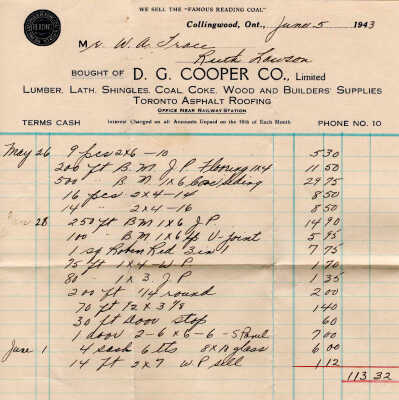 WE SELL THE "FAMOUS READING COAL"
Collingwood, Ont., June 5 1943
Mr. W. A. Trace
Ruth Lawson
BOUGHT OF D. G. COOPER CO., Limited
LUMBER, LATH, SHINGLES, COAL, COKE, WOOD AND BUILDERS' SUPPLIES
TORONTO ASPHALT ROOFING
OFFICE NEAR RAILWAY STATION
TERMS CASH Interest Charged on all Accounts Unpaid on the 10th of Each Month PHONE NO. 10
May 26 9 pcs 2x6 - 10 5 30
200 ft B.M. J.P. Flooring 1x4 11 50
500 " B M 1x6 Cove Siding 29 75
16 pcs 2x4 - 14 8 50
14 " 2x4 - 16 8 50
28 250 ft BM 1x6 J.P 14 90
100 " BM 1x6 V-joint 5 95
1 sq Robin Red 3 in 1 7 75
75 ft 1x4 - W.P 1 70
80 " 1x3 J.P 1 35
200 ft 1/4 round 2 00
70 ft 1 2 x 3 1/8 1 40
30 ft Door stop 60
1 door 2-6 x 6-6 - 5 Panel 7 00
June 1 4 sash 6 lts 8x10 glass 6 00
14 ft 2x7 W.P sill 1 12
113 32